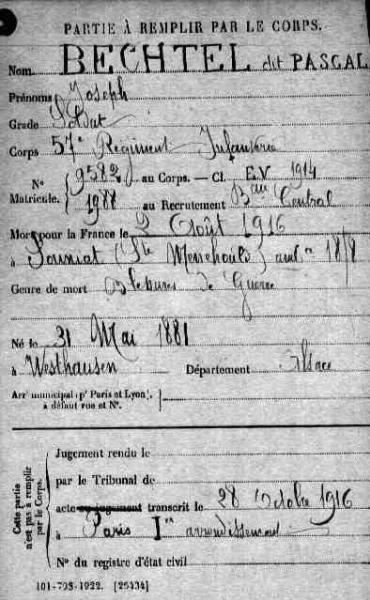 PARTIE À REMPLIR PAR LE CORPS.
Nom BECHTEL dit PASCAL
Prénoms Joseph
Grade Soldat
Corps 57e Regiment Infanterie
N° Matricule. { 9582 au Corps. — Cl. E.V 1914
1988 au Recrutement Bau Central
Mort pour la France le 2 Août 1916
à (Ste Menehould) 18/8
Genre de mort Blessures de Guerre
Né le 31 Mai 1881
à Westhausen Département Alsace
Arrt municipal (pr Paris et Lyon),
à défaut rue et N°.
Cette partie
n'est pas à remplir
par le Corps.
Jugement rendu le
par le Tribunal de
acte ou jugement transcrit le 28 Octobre 1916
à Paris Ier arrondissement
N° du registre d'état civil
101-708-1922. [26434]